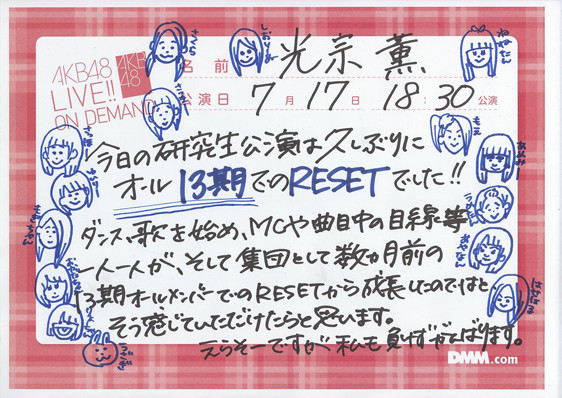 AKB48
LIVE!!
ON DEMAND
AKB
48
名前 光宗 薫
公演日 7月17日 18:30公演
今日の研究生公演は久しぶりに
オール13期でのRESETでした!!
ダンス、歌を始め、MCや曲目中の目線等
一人一人が、そして集団として数カ月前の
13期オールメンバーでのRESETから成長したのではと
そう感じていただけたらと思います。
えらそーですが私も負けずがんばります。
DMM.com